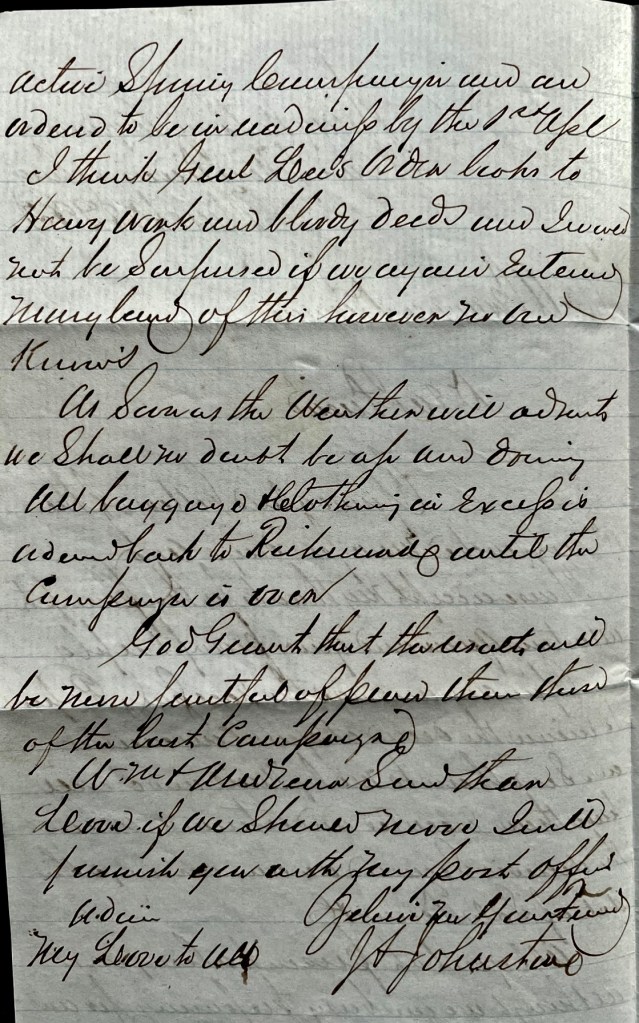 active Spring Campaign and are
orderd to be in readiness by the 1st Apl
I think Genl Lee's Order looks to
Heavy work and bloody deeds and I would
not be Surprised if we again Entered
Maryland of this however no one
Knows
As Soon as the Weather will admit
we Shall no doubt be up and doing
All baggage & Clothing in Excess is
orderd back to Richmond until the
Campaign is over
God Grant that the results will
be more fruitful of peace than those
of the last Campaign
Wm & Andrew Send their
Love if we Should move I will
furnish you with my post office
adieu
My Love to all
J A Johnston